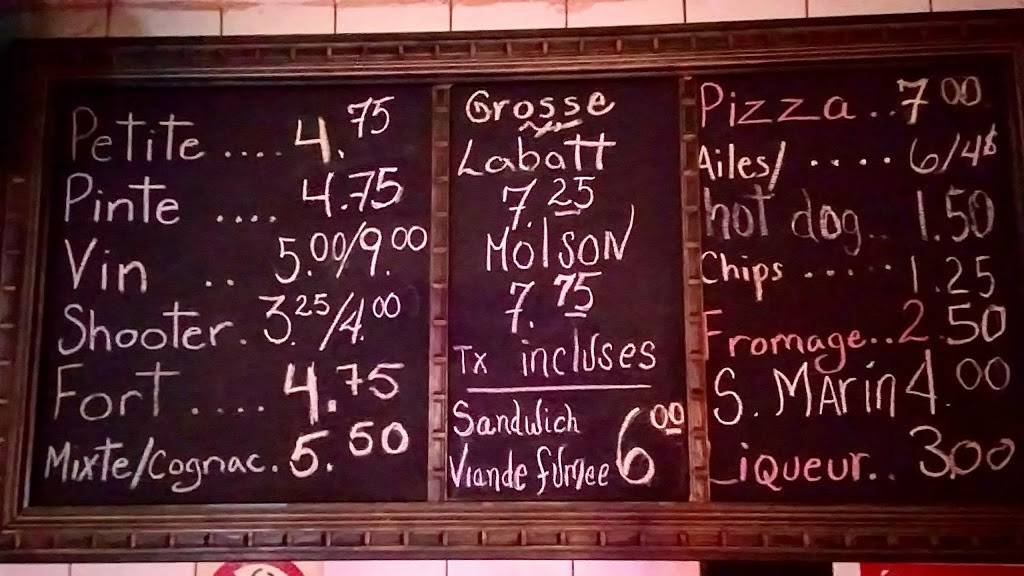 Petite .... 4.75
Pinte .... 4.75
Vin .. 5.00/9.00
Shooter. 3.25/4.00
Fort .... 4.75
Mixte/Cognac. 5.50
Grosse
Labatt
7.25
MOlSON
7.75
Tx incluses
Sandwich
Viande fumee 6.00
Pizza .. 7.00
Ailes/ .... 6/4$
hot dog.. 1.50
Chips ..... 1.25
Fromage.. 2.50
S. MArin 4.00
Liqueur.. 3.00